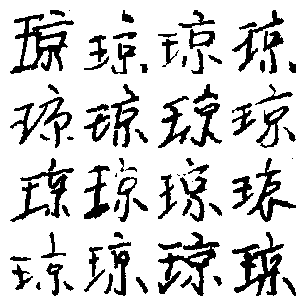 琼琼琼琼
琼琼琼琼
琼琼琼琼
琼琼琼琼